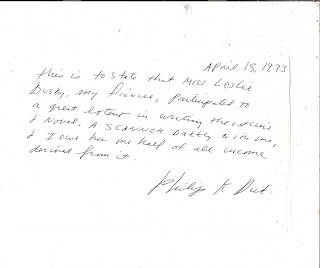 April 19, 1973
This is to state that Miss Leslie
Busby, my fiancee, participated to
a great extent in writing the outline
& Novel, A SCANNER DARKLY with me,
& I owe her one half of all income
derived from it.
Philip K Dick